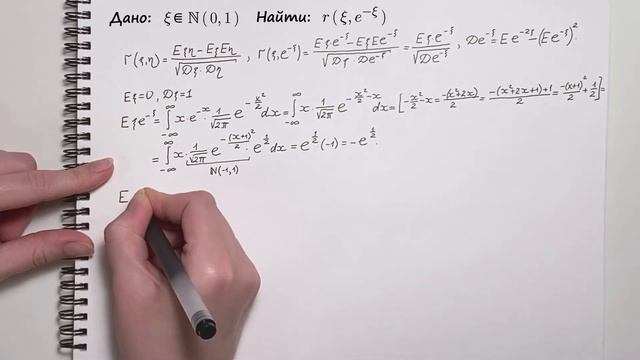 Дано: ξ ∈ ℕ(0,1) Найти: r(ξ, e^{-ξ})
r(ξ,η) = (Eξη - EξEη)/√(Dξ · Dη) , r(ξ,e^{-ξ}) = (Eξ·e^{-ξ} - EξEe^{-ξ})/√(Dξ · De^{-ξ}) = Eξ·e^{-ξ}/√(De^{-ξ}) , De^{-ξ} = Ee^{-2ξ} - (Ee^{-ξ})²
Eξ=0, Dξ=1
Eξe^{-ξ} = ∫_{-∞}^{∞} x·e^{-x}·1/√(2π) e^{-x²/2}dx = ∫_{-∞}^{∞} x·1/√(2π) e^{-x²/2-x}dx = [-x²/2-x = -(x²+2x)/2 = (-(x²+2x+1)+1)/2 = -(x+1)²/2 + 1/2] =
= ∫_{-∞}^{∞} x·1/√(2π) e^{-(x+1)²/2}·e^{1/2}dx = e^{1/2}(-1) = -e^{1/2}.
N(-1,1)
E